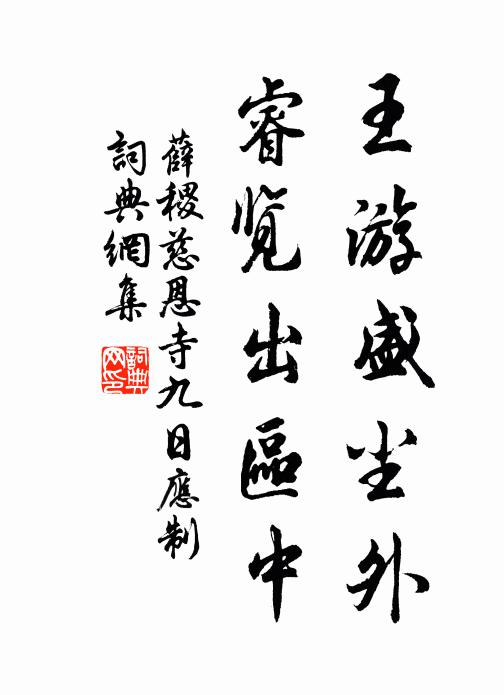 王游盛尘外
睿览出區中
薛稷慈恩寺九日應制
詞典網集
詞典
网印